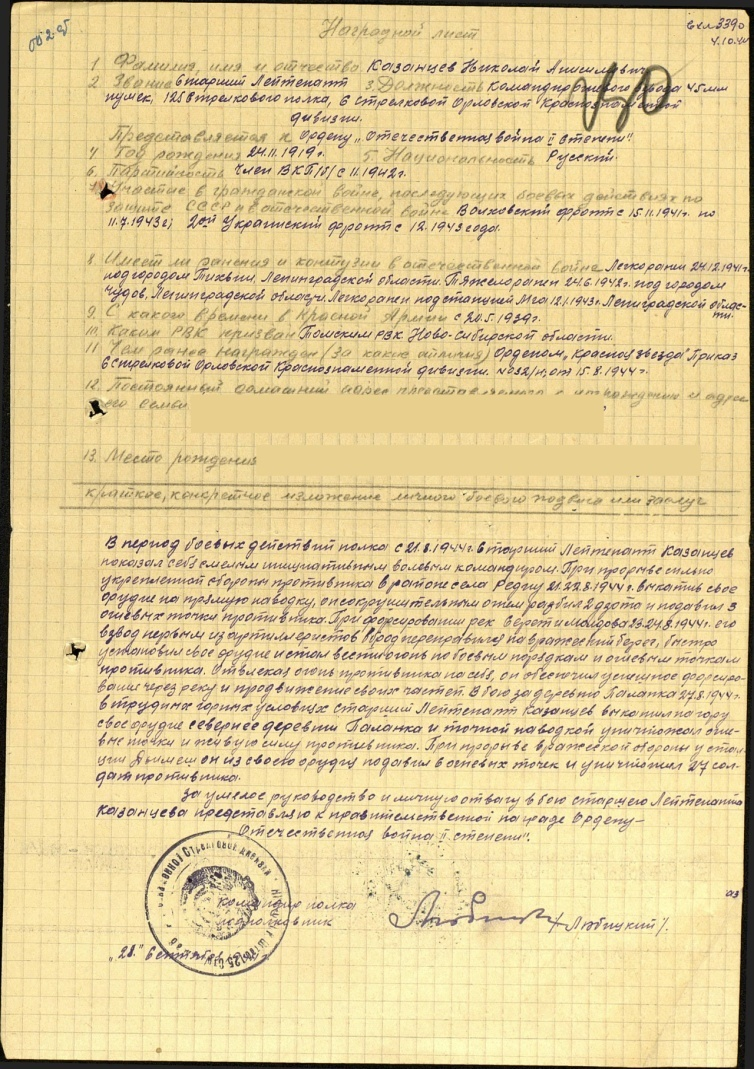 Наградной лист
вхл 3390
4.10.44
1 Фамилия, имя и отчество Казанцев Николай Анисимович
2 Звание Старший Лейтенант 3. Должность Командир огневого взвода 45мм
пушек, 125 Стрелкового полка, 6 Стрелковой Орловской Краснознаменной
дивизии.
Представляется к Ордену „Отечественная война II степени"
4 Год рождения 24.11.1919г. 5. Национальность Русский.
6. Партийность Член ВКП/б/ с 11.1942г.
7. Участие в гражданской войне, последующих боевых действиях по
защите СССР и в отечественной войне Волховский фронт с 15.11.1941г. по
11.7.1943г; 2ой Украинский фронт с 12.1943 года.
8. Имеет ли ранения и контузии в отечественной войне Легко ранен 24.12.1941г.
под городом Тихвин, Ленинградской области. Тяжело ранен 24.6.1942г. под городом
Чудов, Ленинградской области. Легко ранен под станцией Мга 12.1.1943г. Ленинградской облас-
ти.
9. С какого времени в Красной Армии с 20.5.1939г.
10. Каким РВК призван Томским РВК Ново-Сибирской области.
11. Чем ранее награжден (за какие отличия) Орденом „Красная звезда" Приказ
6 Стрелковой Орловской Краснознаменной дивизии. №032/н, от 15.8.1944г.
12. Постоянный домашний адрес представляемого к награждению и адрес
его семьи
13. Место рождения
Краткое, конкретное изложение личного боевого подвига или заслуг
В период боевых действий полка с 21.8.1944г. Старший Лейтенант Казанцев
показал себя смелым инициативным волевым командиром. При прорыве сильно
укрепленной обороны противника в районе села Редиу 21.22.8.1944г. выкатив свое
орудие на прямую наводку, он сокрушительным огнем разбил 2 дзота и подавил 3
огневых точки противника. При форсировании рек Серет и Молдова 23-24.8.1944г. его
взвод первым из артиллеристов переправился на вражеский берег, быстро
установил свое орудие и стал вести огонь по боевым порядкам и огневым точкам
противника. Отвлекая огонь противника на себя, он обеспечил успешное форсиро-
вание через реку и продвижение своих частей. В бою за деревню Паланка 27.8.1944г.
в трудных горных условиях Старший Лейтенант Казанцев выкатил на гору
свое орудие севернее деревни Паланка и точной наводкой уничтожал огне-
вые точки и живую силу противника. При прорыве вражеской обороны у стан-
ции он из своего орудия подавил 6 огневых точек и уничтожил 27 сол-
дат противника.
За умелое руководство и личную отвагу в бою старшего Лейтенанта
Казанцева представляю к правительственной награде Ордену-
Отечественная война II степени".
Командир полка
подполковник
/Любицкий/.
„28." Сентября
аз